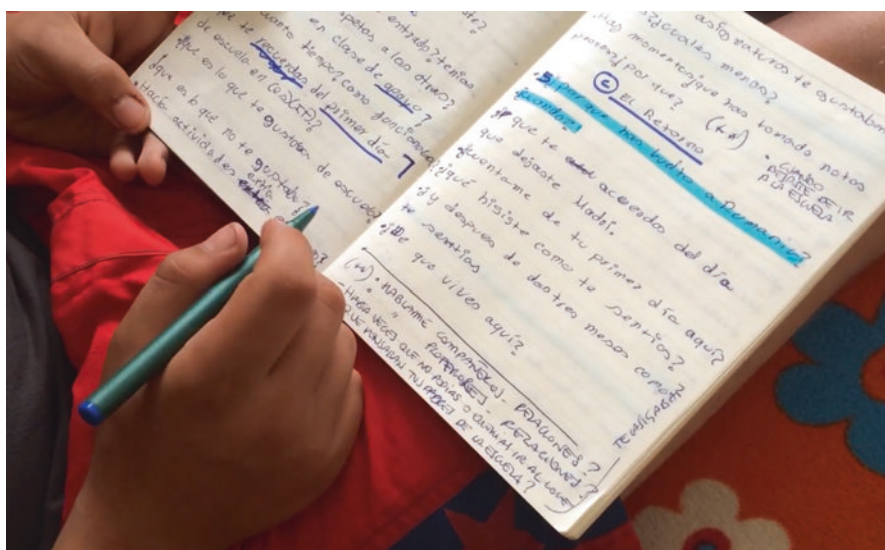 entrado? tenías
a los otros?
en clase de apoyo?
cuanto tiempo? como funcionava
¿que te recuerdas del primer día
de escuela en
¿que es lo que te gustaba de escuela?
¿que es lo que no te gustaba?
• Hacías
actividades extra
asignaturas te gustaban
¿cuales menos?
¿Hay momentos que has tomado notas
peores? ¿por que? (**)
C El Retorno
• CUANDO
DEJASTE DE IR
A LA ESCUELA
5. ¿por que has vuelto a Rumania?
¿cuando?
¿que te acuerdas del día
que dejaste Madri.
¿cuentame de tu primer día aquí?
¿qué hisiste como te sentias?
¿y despues de dos tres meses como
te sentias
¿De que vives aquí?
(**) • HABLAME COMPAÑEROS - RELACIONES?
" PROFESORES - RELACIONES?
- HABIA VECES QUE NO PODIAS O QUERIAS IR AL COLE?
QUE PENSABAN TUS PADRES DE LA ESCUELA?